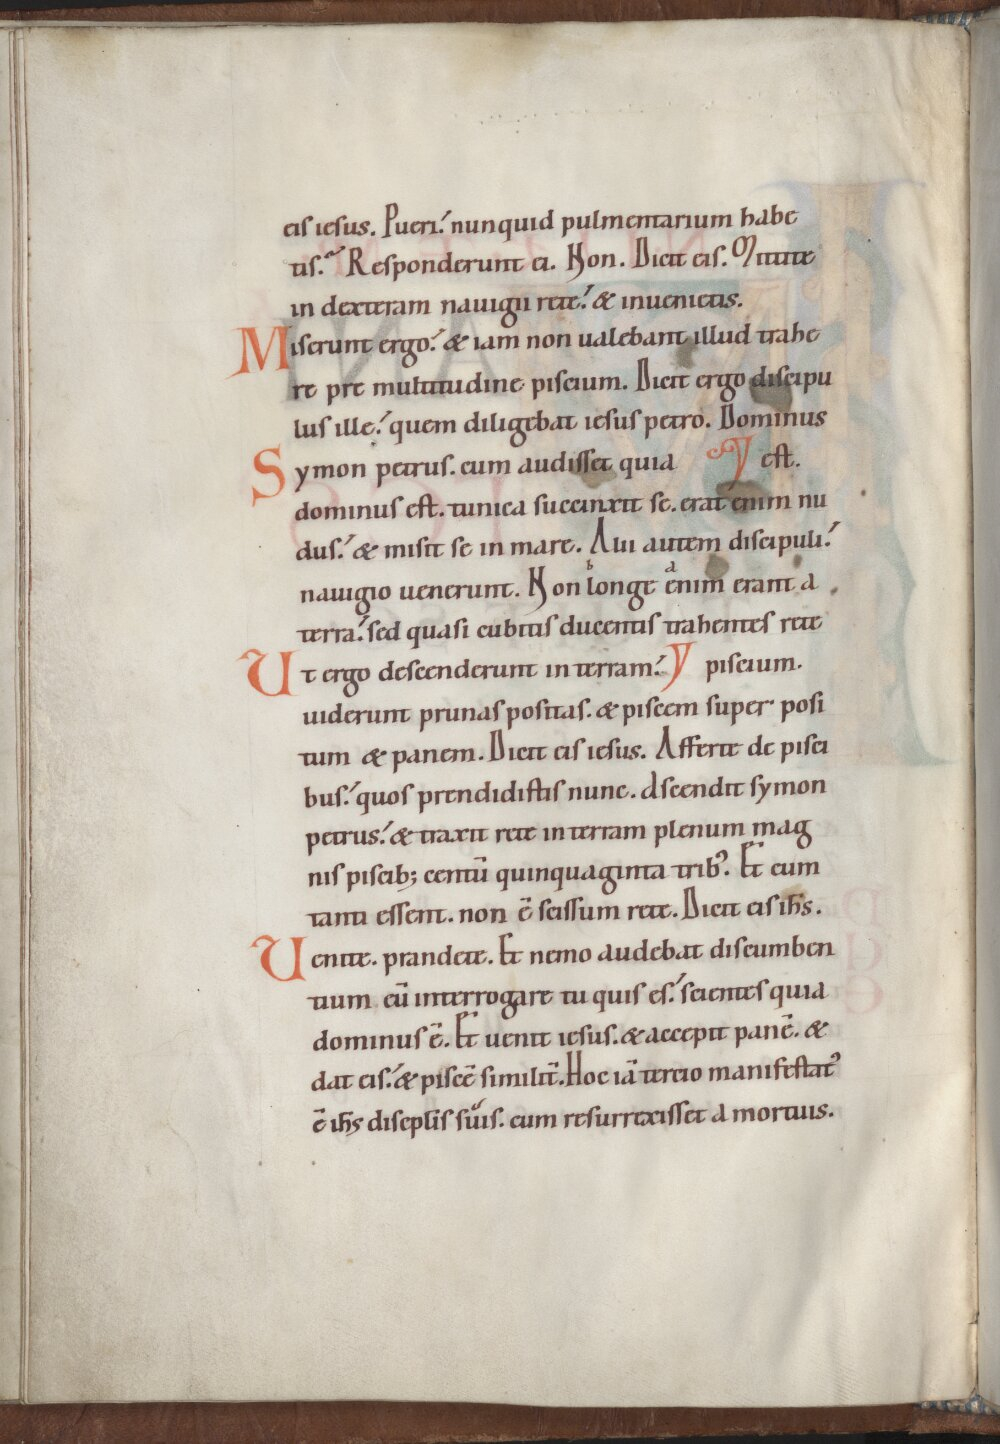 eis iesus. Pueri! nunquid pulmentarium habe
tis. Responderunt ei. Non. Dicit eis. Mittite
in dexteram nauigii rete! & inuenietis.
Miserunt ergo! & iam non ualebant illud trahe
re pre multitudine piscium. Dicit ergo discipu
lus ille! quem diligebat iesus petro. Dominus
Symon petrus. cum audisset quia est.
dominus est. tunica succinxit se. erat enim nu
dus! & misit se in mare. Alii autem discipuli!
nauigio uenerunt. Non longe enim erant a
terra! sed quasi cubitis ducentis trahentes rete
Ut ergo descenderunt in terram! piscium.
uiderunt prunas positas. & piscem super posi
tum & panem. Dicit eis iesus. Afferte de pisci
bus! quos prendidistis nunc. Ascendit symon
petrus! & traxit rete in terram plenum mag
nis piscib; centū quinquaginta trib⁹. Et cum
tanti essent. non ē scissum rete. Dicit eis ih̄s.
Uenite. prandete. Et nemo audebat discumben
tium eū interrogare tu quis es! scientes quia
dominus ē. Et uenit iesus. & accepit panē. &
dat eis! & piscē similit̄. Hoc iā tercio manifestat⁹
ē ih̄s discplīs suis. cum resurrexisset a mortuis.